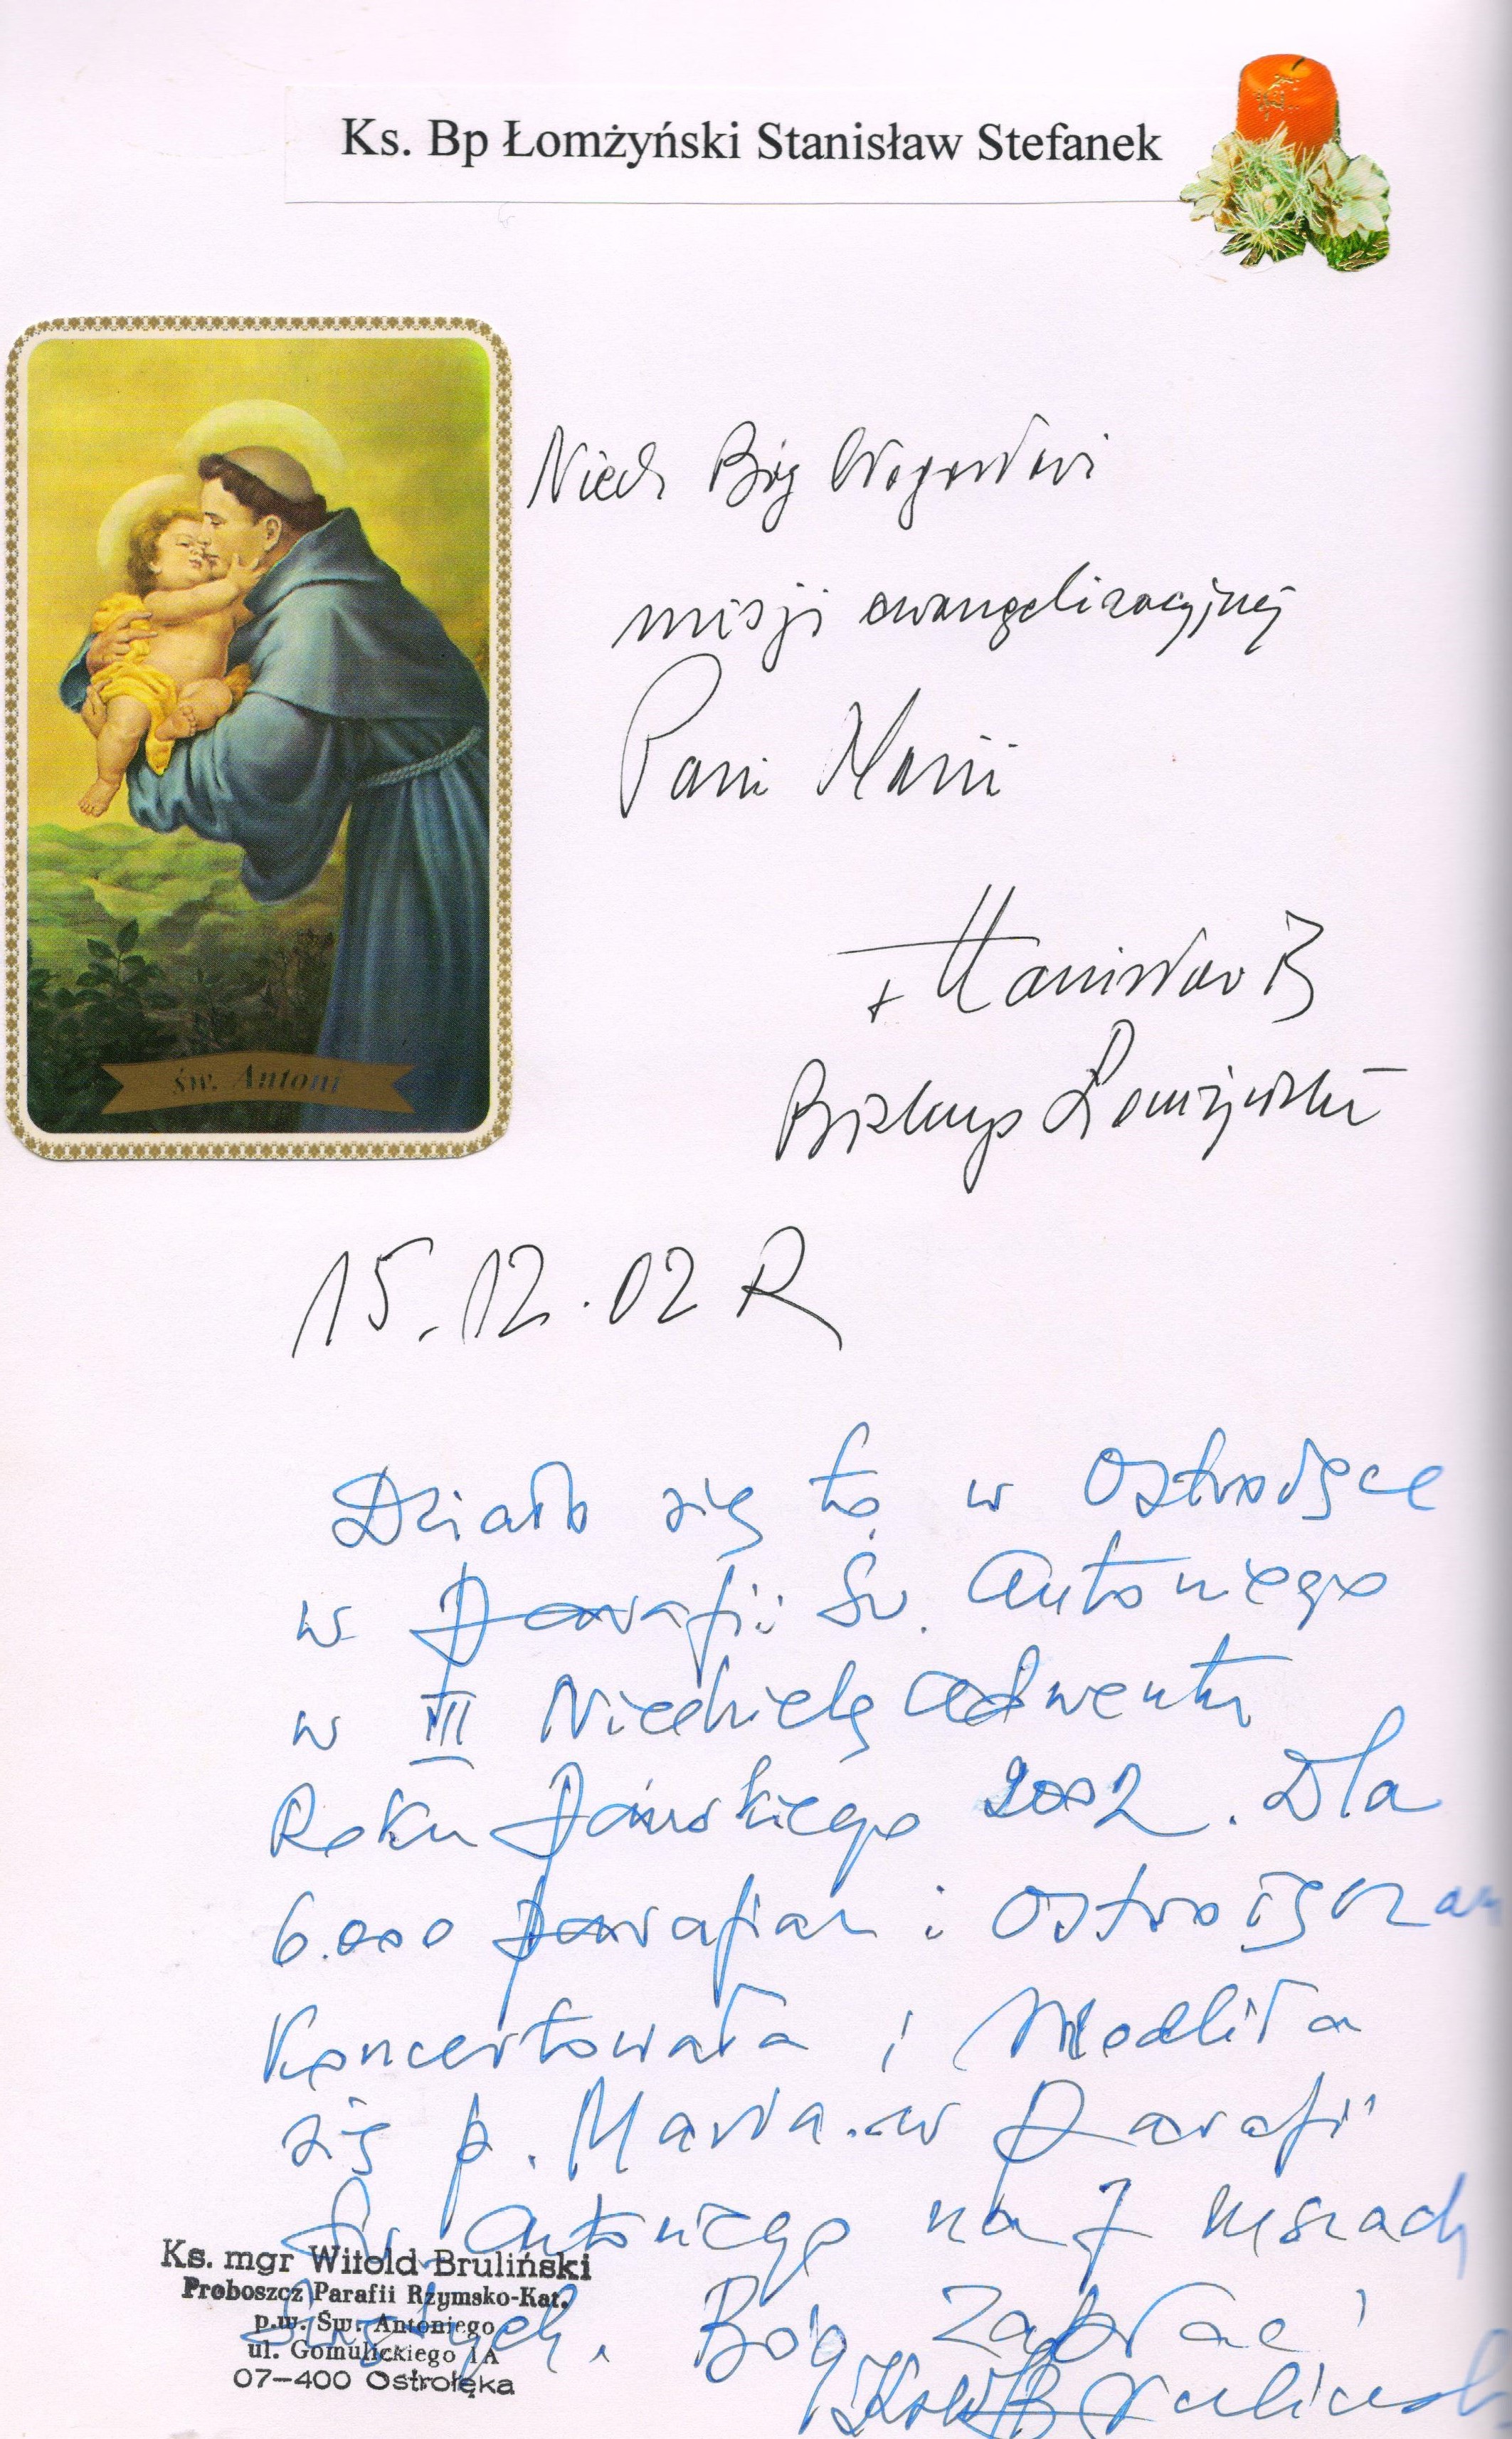 Ks. Bp Łomżyński Stanisław Stefanek
Niech Bóg błogosławi
misji ewangelizacyjnej
Pani Marii
+ Stanisław B
Biskup Łomżyński
św. Antoni
15.12.02 R
Działo się to w Ostrołęce
w Parafii Św. Antoniego
w III Niedzielę Adwentu
Roku Pańskiego 2002. Dla
6.000 parafian i Ostrołęczan
Koncertowała i Modliła
się p. Maria w Parafii
Św. Antoniego na 7 Mszach
Świętych. Bóg zapłać!
Ks. mgr Witold Bruliński
Proboszcz Parafii Rzymsko-Kat.
p.w. Św. Antoniego
ul. Gomulickiego 1A
07-400 Ostrołęka